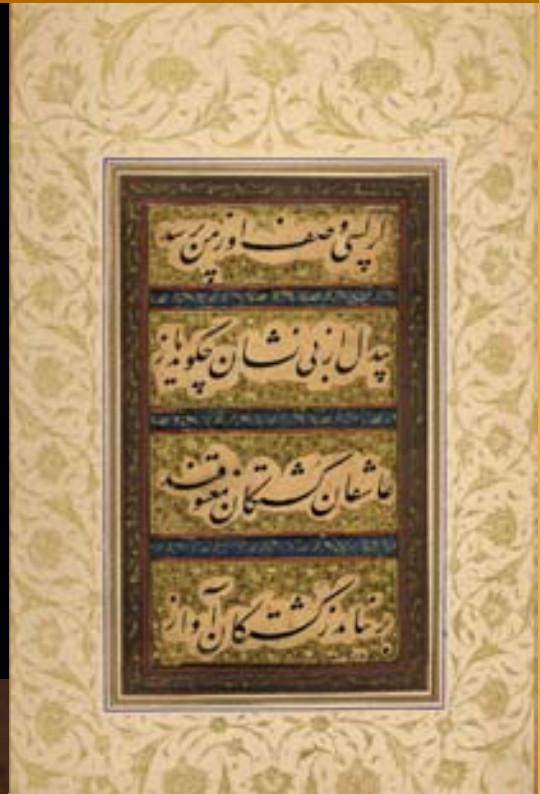 گر کسی وصف او ز من پرسد
بیدل از بی نشان چگوید باز
عاشقان کشتگان معشوقند
برنیاید ز کشتگان آواز